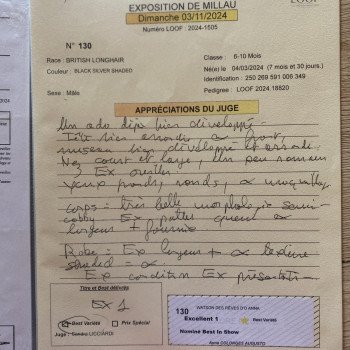 EXPOSITION DE MILLAU
Dimanche 03/11/2024
Numéro LOOF : 2024-1605
LOOF
N° 130
Race : BRITISH LONGHAIR
Couleur : BLACK SILVER SHADED
Sexe : Mâle
Classe : 6-10 Mois
Né(e) le 04/03/2024 (7 mois et 30 jours.)
Identification : 250 269 591 006 349
Pedigree : LOOF 2024.18820
APPRÉCIATIONS DU JUGE
Un ado déjà bien développé.
Tête bien
museau bien développé et arrondi.
Nez court et large, un peu romain
Ex oreilles.
yeux ronds,
corps = très belle morpho semi-
cobby Ex pattes queue
largeur + fournie
Robe = Ex longueur + texture
shaded =
Ex condition Ex présentation
Titre et Best délivrés
EX 1
Best Variété
Prix Spécial
Juge : Sandra LICCIARDI
WATSON DES RÊVES D'ANNA
130
Excellent 1
Best Variété
Nominé Best In Show
Anne COLORGES AUGUSTO